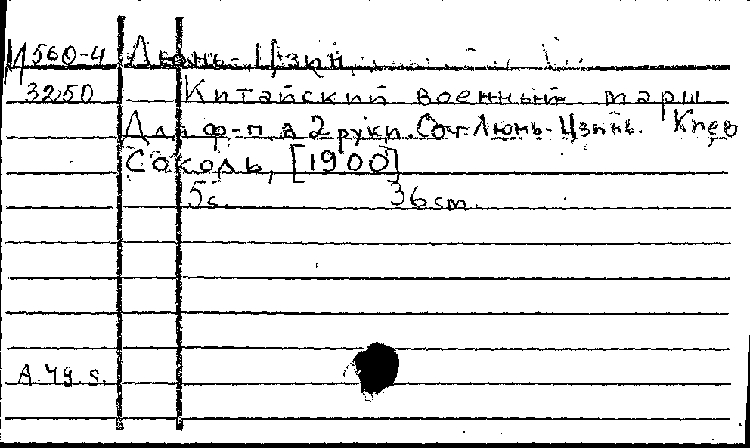 М 560-4 Люнь-Цзин,
3250 Китайский военный марш
Для ф-п в 2 руки. Соч. Люнь-Цзинь. Киев
Соколь, [1900]
5 s. 36 cm.
A. 49. s.